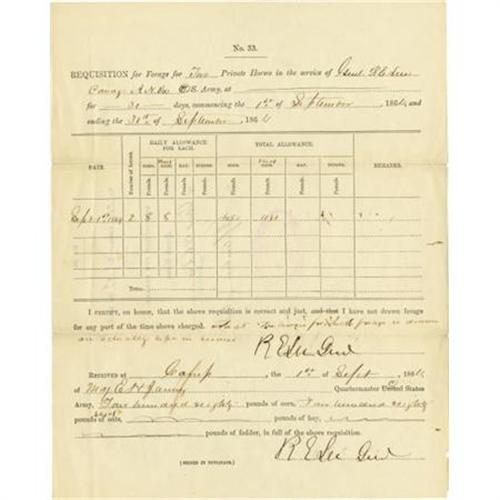 No. 33.
REQUISITION for Forage for Two Private Horses in the service of Genl R E Lee
Comdg A. N. Va C. S. Army, at
for 30 days, commencing the 1st of September, 1864, and
ending the 30th of September 1864
DATE. Number of horses. DAILY ALLOWANCE FOR EACH. TOTAL ALLOWANCE. REMARKS.
CORN. HAY. FODDER. CORN. HAY. FODDER.
Pounds. Pounds. Pounds. Pounds. Pounds. Pounds. Pounds. Pounds.
Sept 1st 1864 2 8 8 480
Total
I CERTIFY, on honor, that the above requisition is correct and just, and that I have not drawn forage
for any part of the time above charged.
are actually kept in service
R E Lee Genl
RECEIVED at Camp the 1st of Sept, 1864,
of Maj Quartermaster United States
Army, Four hundred eighty pounds of corn, Four hundred eighty
pounds of oats, pounds of hay,
pounds of fodder, in full of the above requisition.
R E Lee Genl
(SIGNED IN DUPLICATE.)